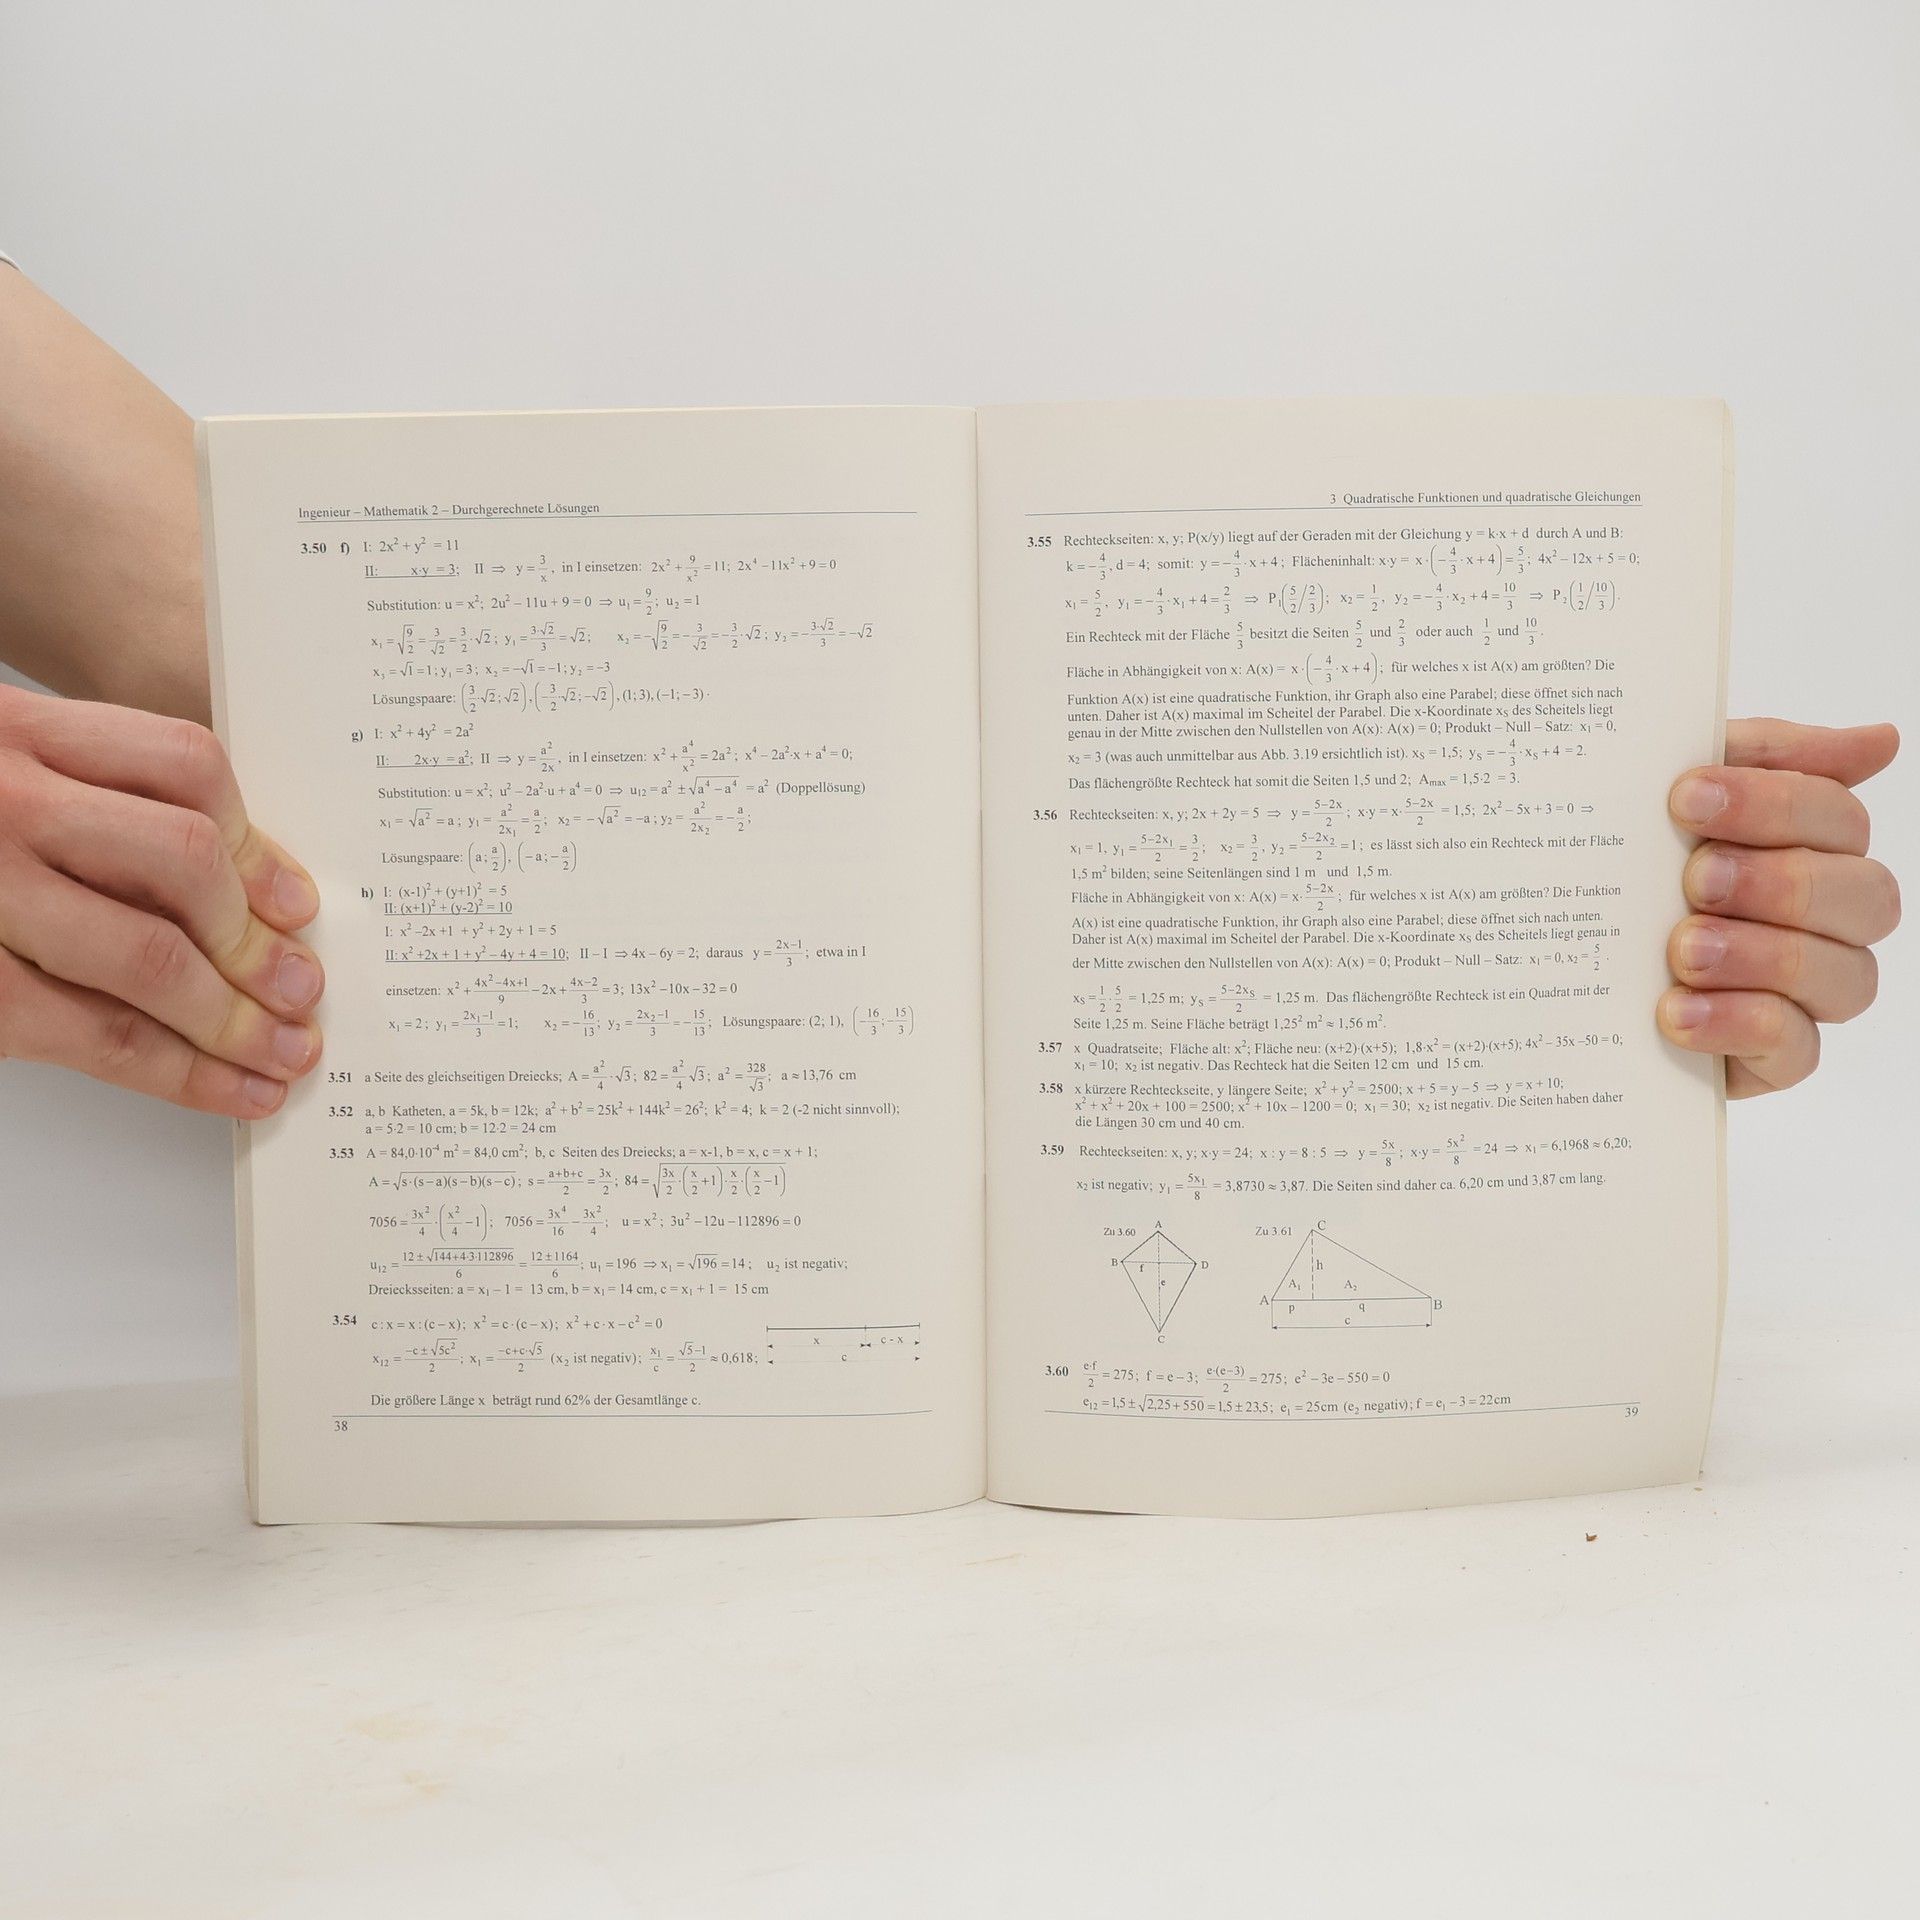 Ingenieur – Mathematik 2 – Durchgerechnete Lösungen
3.50 f) I: 2x² + y² = 11
II: x·y = 3; II ⇒ y = 3/x, in I einsetzen: 2x² + 9/x² = 11; 2x⁴ – 11x² + 9 = 0
Substitution: u = x²; 2u² – 11u + 9 = 0 ⇒ u₁ = 9/2; u₂ = 1
x₁ = √(9/2) = 3/√2 = 3/2·√2; y₁ = 3·√2/3 = √2; x₂ = –√(9/2) = –3/√2 = –3/2·√2; y₂ = –3·√2/3 = –√2
x₃ = √1 = 1; y₁ = 3; x₂ = –√1 = –1; y₂ = –3
Lösungspaare: (3/2·√2; √2), (–3/2·√2; –√2), (1; 3), (–1; –3)·
g) I: x² + 4y² = 2a²
II: 2x·y = a²; II ⇒ y = a²/2x, in I einsetzen: x² + a⁴/x² = 2a²; x⁴ – 2a²·x + a⁴ = 0;
Substitution: u = x²; u² – 2a²·u + a⁴ = 0 ⇒ u₁₂ = a² ± √(a⁴ – a⁴) = a² (Doppellösung)
x₁ = √a² = a; y₁ = a²/2x₁ = a/2; x₂ = –√a² = –a; y₂ = a²/2x₂ = –a/2;
Lösungspaare: (a; a/2), (–a; –a/2)
h) I: (x-1)² + (y+1)² = 5
II: (x+1)² + (y-2)² = 10
I: x² –2x +1 + y² + 2y + 1 = 5
II: x² +2x + 1 + y² – 4y + 4 = 10; II – I ⇒ 4x – 6y = 2; daraus y = (2x–1)/3; etwa in I
einsetzen: x² + (4x²–4x+1)/9 – 2x + (4x–2)/3 = 3; 13x² – 10x – 32 = 0
x₁ = 2; y₁ = (2x₁–1)/3 = 1; x₂ = –16/13; y₂ = (2x₂–1)/3 = –15/13; Lösungspaare: (2; 1), (–16/3; –15/3)
3.51 a Seite des gleichseitigen Dreiecks; A = a²/4·√3; 82 = a²/4 √3; a² = 328/√3; a ≈ 13,76 cm
3.52 a, b Katheten, a = 5k, b = 12k; a² + b² = 25k² + 144k² = 26²; k² = 4; k = 2 (-2 nicht sinnvoll);
a = 5·2 = 10 cm; b = 12·2 = 24 cm
3.53 A = 84,0·10⁻⁴ m² = 84,0 cm²; b, c Seiten des Dreiecks; a = x-1, b = x, c = x + 1;
A = √(s·(s – a)(s – b)(s – c)); s = (a+b+c)/2 = 3x/2; 84 = √(3x/2·(x/2+1)·x/2·(x/2–1))
7056 = 3x²/4·(x²/4–1); 7056 = 3x⁴/16 – 3x²/4; u = x²; 3u² – 12u – 112896 = 0
u₁₂ = (12 ± √(144+4·3·112896))/6 = (12 ± 1164)/6; u₁ = 196 ⇒ x₁ = √196 = 14; u₂ ist negativ;
Dreiecksseiten: a = x₁ – 1 = 13 cm, b = x₁ = 14 cm, c = x₁ + 1 = 15 cm
3.54 c : x = x : (c – x); x² = c·(c – x); x² + c·x – c² = 0
x₁₂ = (–c ± √5c²)/2; x₁ = (–c+c·√5)/2 (x₂ ist negativ); x₁/c = (√5–1)/2 ≈ 0,618;
x c - x
c
Die größere Länge x beträgt rund 62% der Gesamtlänge c.
38
3 Quadratische Funktionen und quadratische Gleichungen
3.55 Rechteckseiten: x, y; P(x/y) liegt auf der Geraden mit der Gleichung y = k·x + d durch A und B:
k = –4/3, d = 4; somit: y = –4/3·x + 4; Flächeninhalt: x·y = x·(–4/3·x + 4) = 5/3; 4x² – 12x + 5 = 0;
x₁ = 5/2, y₁ = –4/3·x₁ + 4 = 2/3 ⇒ P₁(5/2 / 2/3); x₂ = 1/2, y₂ = –4/3·x₂ + 4 = 10/3 ⇒ P₂(1/2 / 10/3).
Ein Rechteck mit der Fläche 5/3 besitzt die Seiten 5/2 und 2/3 oder auch 1/2 und 10/3.
Fläche in Abhängigkeit von x: A(x) = x·(–4/3·x + 4); für welches x ist A(x) am größten? Die
Funktion A(x) ist eine quadratische Funktion, ihr Graph also eine Parabel; diese öffnet sich nach
unten. Daher ist A(x) maximal im Scheitel der Parabel. Die x-Koordinate xS des Scheitels liegt
genau in der Mitte zwischen den Nullstellen von A(x): A(x) = 0; Produkt – Null – Satz: x₁ = 0,
x₂ = 3 (was auch unmittelbar aus Abb. 3.19 ersichtlich ist). xS = 1,5; yS = –4/3·xS + 4 = 2.
Das flächengrößte Rechteck hat somit die Seiten 1,5 und 2; Amax = 1,5·2 = 3.
3.56 Rechteckseiten: x, y; 2x + 2y = 5 ⇒ y = (5–2x)/2; x·y = x·(5–2x)/2 = 1,5; 2x² – 5x + 3 = 0 ⇒
x₁ = 1, y₁ = (5–2x₁)/2 = 3/2; x₂ = 3/2, y₂ = (5–2x₂)/2 = 1; es lässt sich also ein Rechteck mit der Fläche
1,5 m² bilden; seine Seitenlängen sind 1 m und 1,5 m.
Fläche in Abhängigkeit von x: A(x) = x·(5–2x)/2; für welches x ist A(x) am größten? Die Funktion
A(x) ist eine quadratische Funktion, ihr Graph also eine Parabel; diese öffnet sich nach unten.
Daher ist A(x) maximal im Scheitel der Parabel. Die x-Koordinate xS des Scheitels liegt genau in
der Mitte zwischen den Nullstellen von A(x): A(x) = 0; Produkt – Null – Satz: x₁ = 0, x₂ = 5/2.
xS = 1/2·5/2 = 1,25 m; yS = (5–2xS)/2 = 1,25 m. Das flächengrößte Rechteck ist ein Quadrat mit der
Seite 1,25 m. Seine Fläche beträgt 1,25² m² ≈ 1,56 m².
3.57 x Quadratseite; Fläche alt: x²; Fläche neu: (x+2)·(x+5); 1,8·x² = (x+2)·(x+5); 4x² – 35x –50 = 0;
x₁ = 10; x₂ ist negativ. Das Rechteck hat die Seiten 12 cm und 15 cm.
3.58 x kürzere Rechteckseite, y längere Seite; x² + y² = 2500; x + 5 = y – 5 ⇒ y = x + 10;
x² + x² + 20x + 100 = 2500; x² + 10x – 1200 = 0; x₁ = 30; x₂ ist negativ. Die Seiten haben daher
die Längen 30 cm und 40 cm.
3.59 Rechteckseiten: x, y; x·y = 24; x : y = 8 : 5 ⇒ y = 5x/8; x·y = 5x²/8 = 24 ⇒ x₁ = 6,1968 ≈ 6,20;
x₂ ist negativ; y₁ = 5x₁/8 = 3,8730 ≈ 3,87. Die Seiten sind daher ca. 6,20 cm und 3,87 cm lang.
Zu 3.60 A
B f D
e
C
Zu 3.61 C
h
A₁ A₂
A p q B
c
3.60 e·f/2 = 275; f = e – 3; e·(e–3)/2 = 275; e² – 3e – 550 = 0
e₁₂ = 1,5 ± √(2,25 + 550) = 1,5 ± 23,5; e₁ = 25cm (e₂ negativ); f = e₁ – 3 = 22cm
39